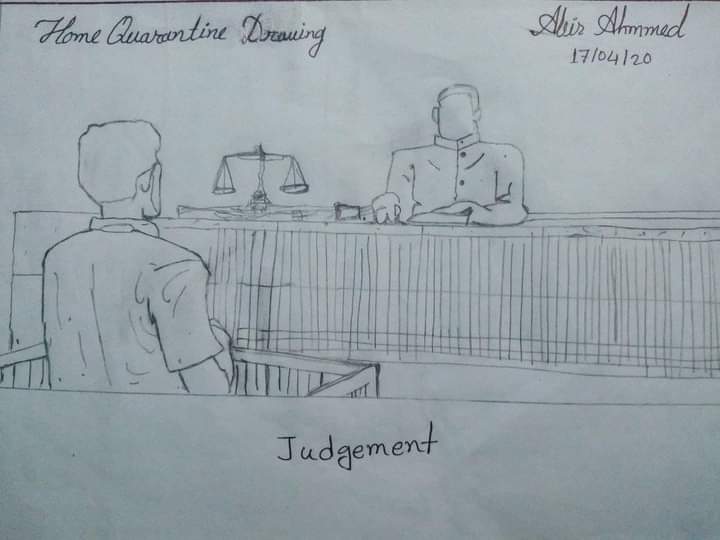 Home Quarantine Drawing
Abir Ahmmed
17/04/20
Judgement